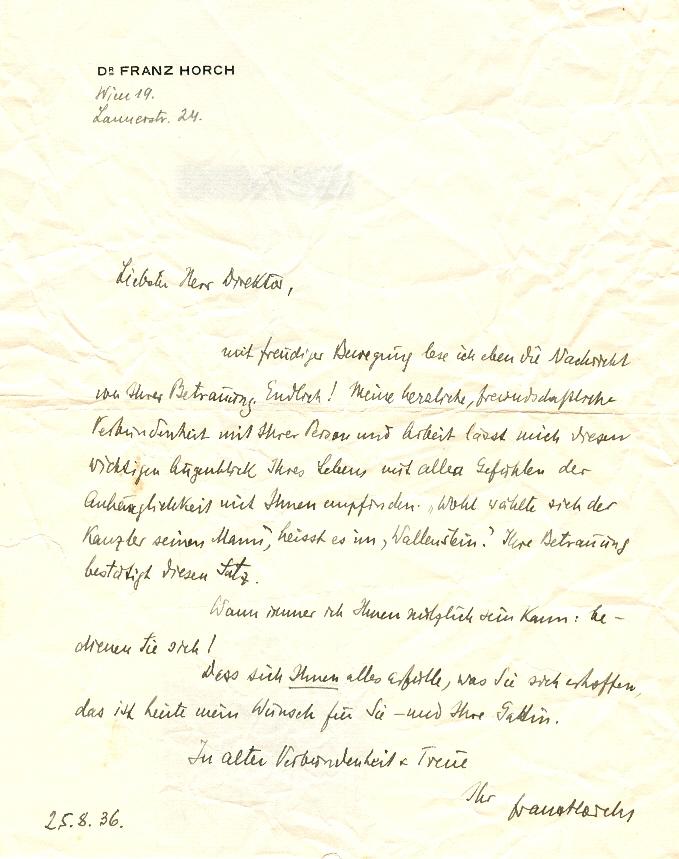 DR FRANZ HORCH
Wien 19.
Lannerstr. 24.
Liebster Herr Direktor,
mit freudiger Bewegung lese ich eben die Nachricht
von Ihrer Betrauung. Endlich! Meine herzliche, freundschaftliche
Verbundenheit mit Ihrer Person und Arbeit lässt mich diesen
wichtigen Augenblick Ihres Lebens mit allen Gefühlen der
Anhänglichkeit mit Ihnen empfinden. „Wohl wählte sich der
Kanzler seinen Mann", heisst es im „Wallenstein". Ihre Betrauung
bestätigt diesen Satz.
Wann immer ich Ihnen nützlich sein kann: be-
dienen Sie sich!
Dass sich Ihnen alles erfülle, was Sie sich erhoffen,
das ist heute mein Wunsch für Sie – und Ihre Gattin.
In alter Verbundenheit & Treue
Ihr Franz Horch
25.8.36.